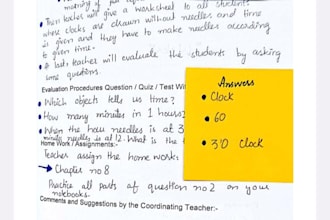 Then teacher will give a worksheet to all students
where clocks are drawn without needles and time
is given and they have to make needles according
to given time.
At last teacher will evaluate the students by asking
some questions.
Evaluation Procedures Question / Quiz / Test
• Which object tells us time?
• How many minutes in 1 hours?
• When the hour needles is at 3
minute needles is at 12. What is the
Home Work / Assignments:-
Teacher assign the home work:
→ Chapter no 8
Practice all parts of question no 2 on your
notebooks.
Comments and Suggestions by the Coordinating Teacher:-
Answers
• Clock
• 60
• 3'0 Clock